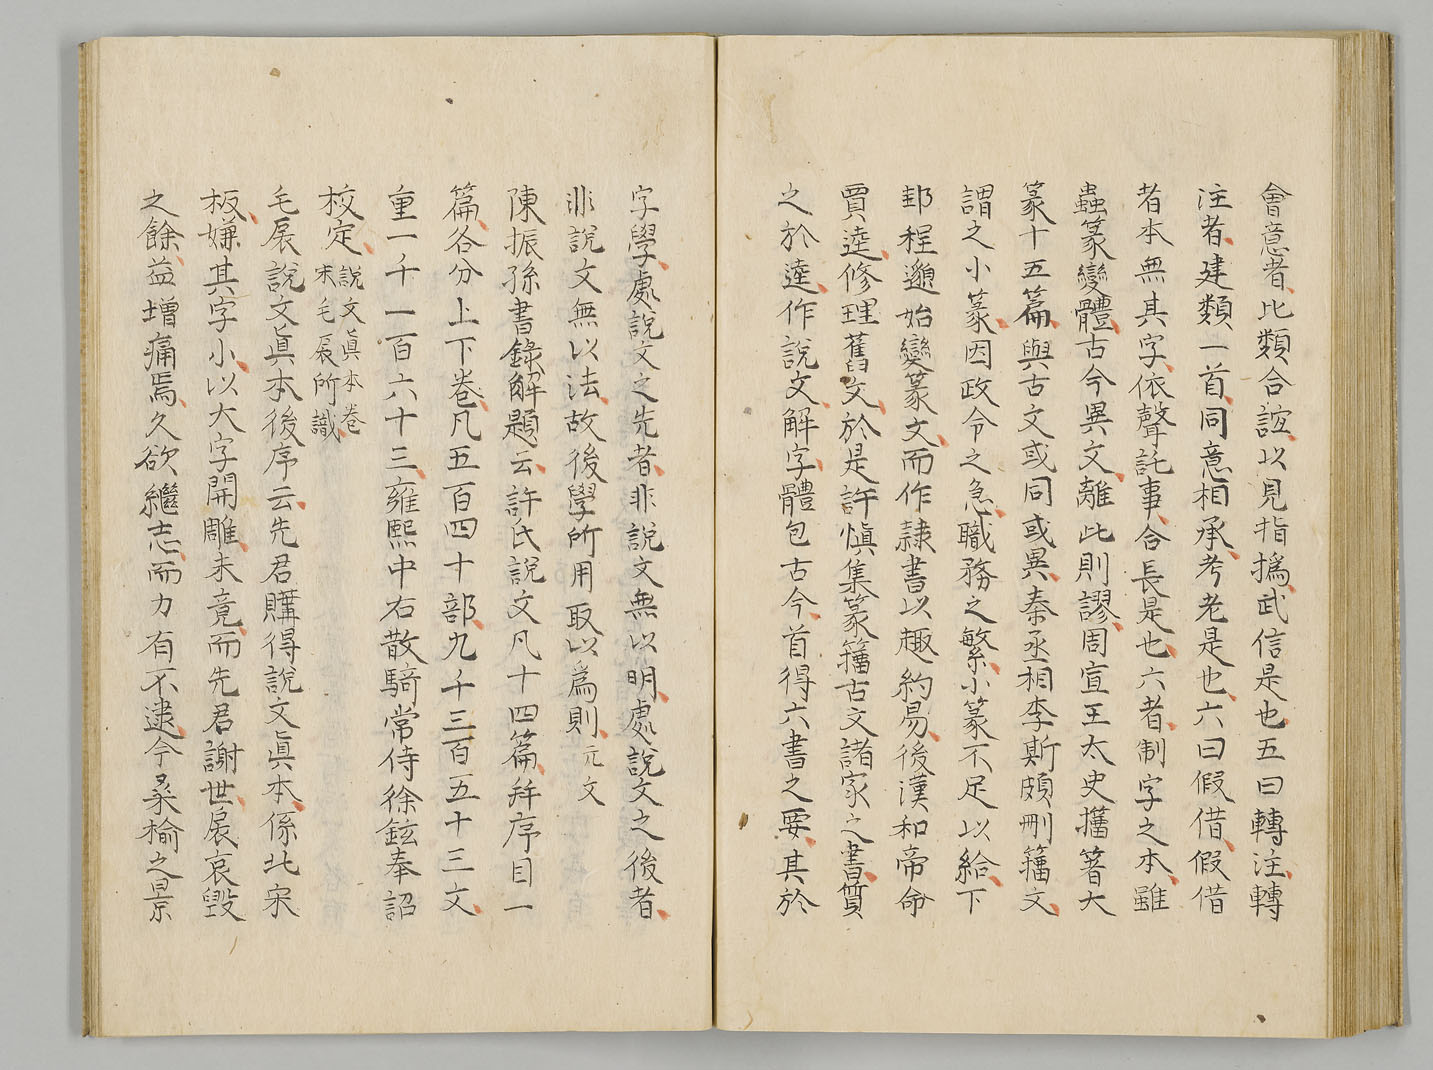 會意者比類合誼以見指撝武信是也五曰轉注轉
注者建類一首同意相承考老是也六曰假借假借
者本無其字依聲託事合長是也六者制字之本雖
蟲篆變體古今異文離此則謬周宣王太史籒著大
篆十五篇與古文或同或異秦丞相李斯頗刪籒文
謂之小篆因政令之急職務之繁小篆不足以給下
邽程邈始變篆文而作隷書以趣約易後漢和帝命
賈逵修理舊文於是許愼集篆籒古文諸家之書質
之於逵作說文解字體包古今首得六書之要其於
字學處說文之先者非說文無以明處說文之後者
非說文無以法故後學所用取以爲則元文
陳振孫書錄解題云許氏說文凡十四篇并序目一
篇各分上下卷凡五百四十部九千三百五十三文
重一千一百六十三雍熙中右散騎常侍徐鉉奉詔
校定說文眞本卷
末毛扆所識
毛扆說文眞本後序云先君購得說文眞本係北宋
板嫌其字小以大字開雕未竟而先君謝世扆哀毀
之餘益增痛焉久欲繼志而力有不逮今桑榆之景